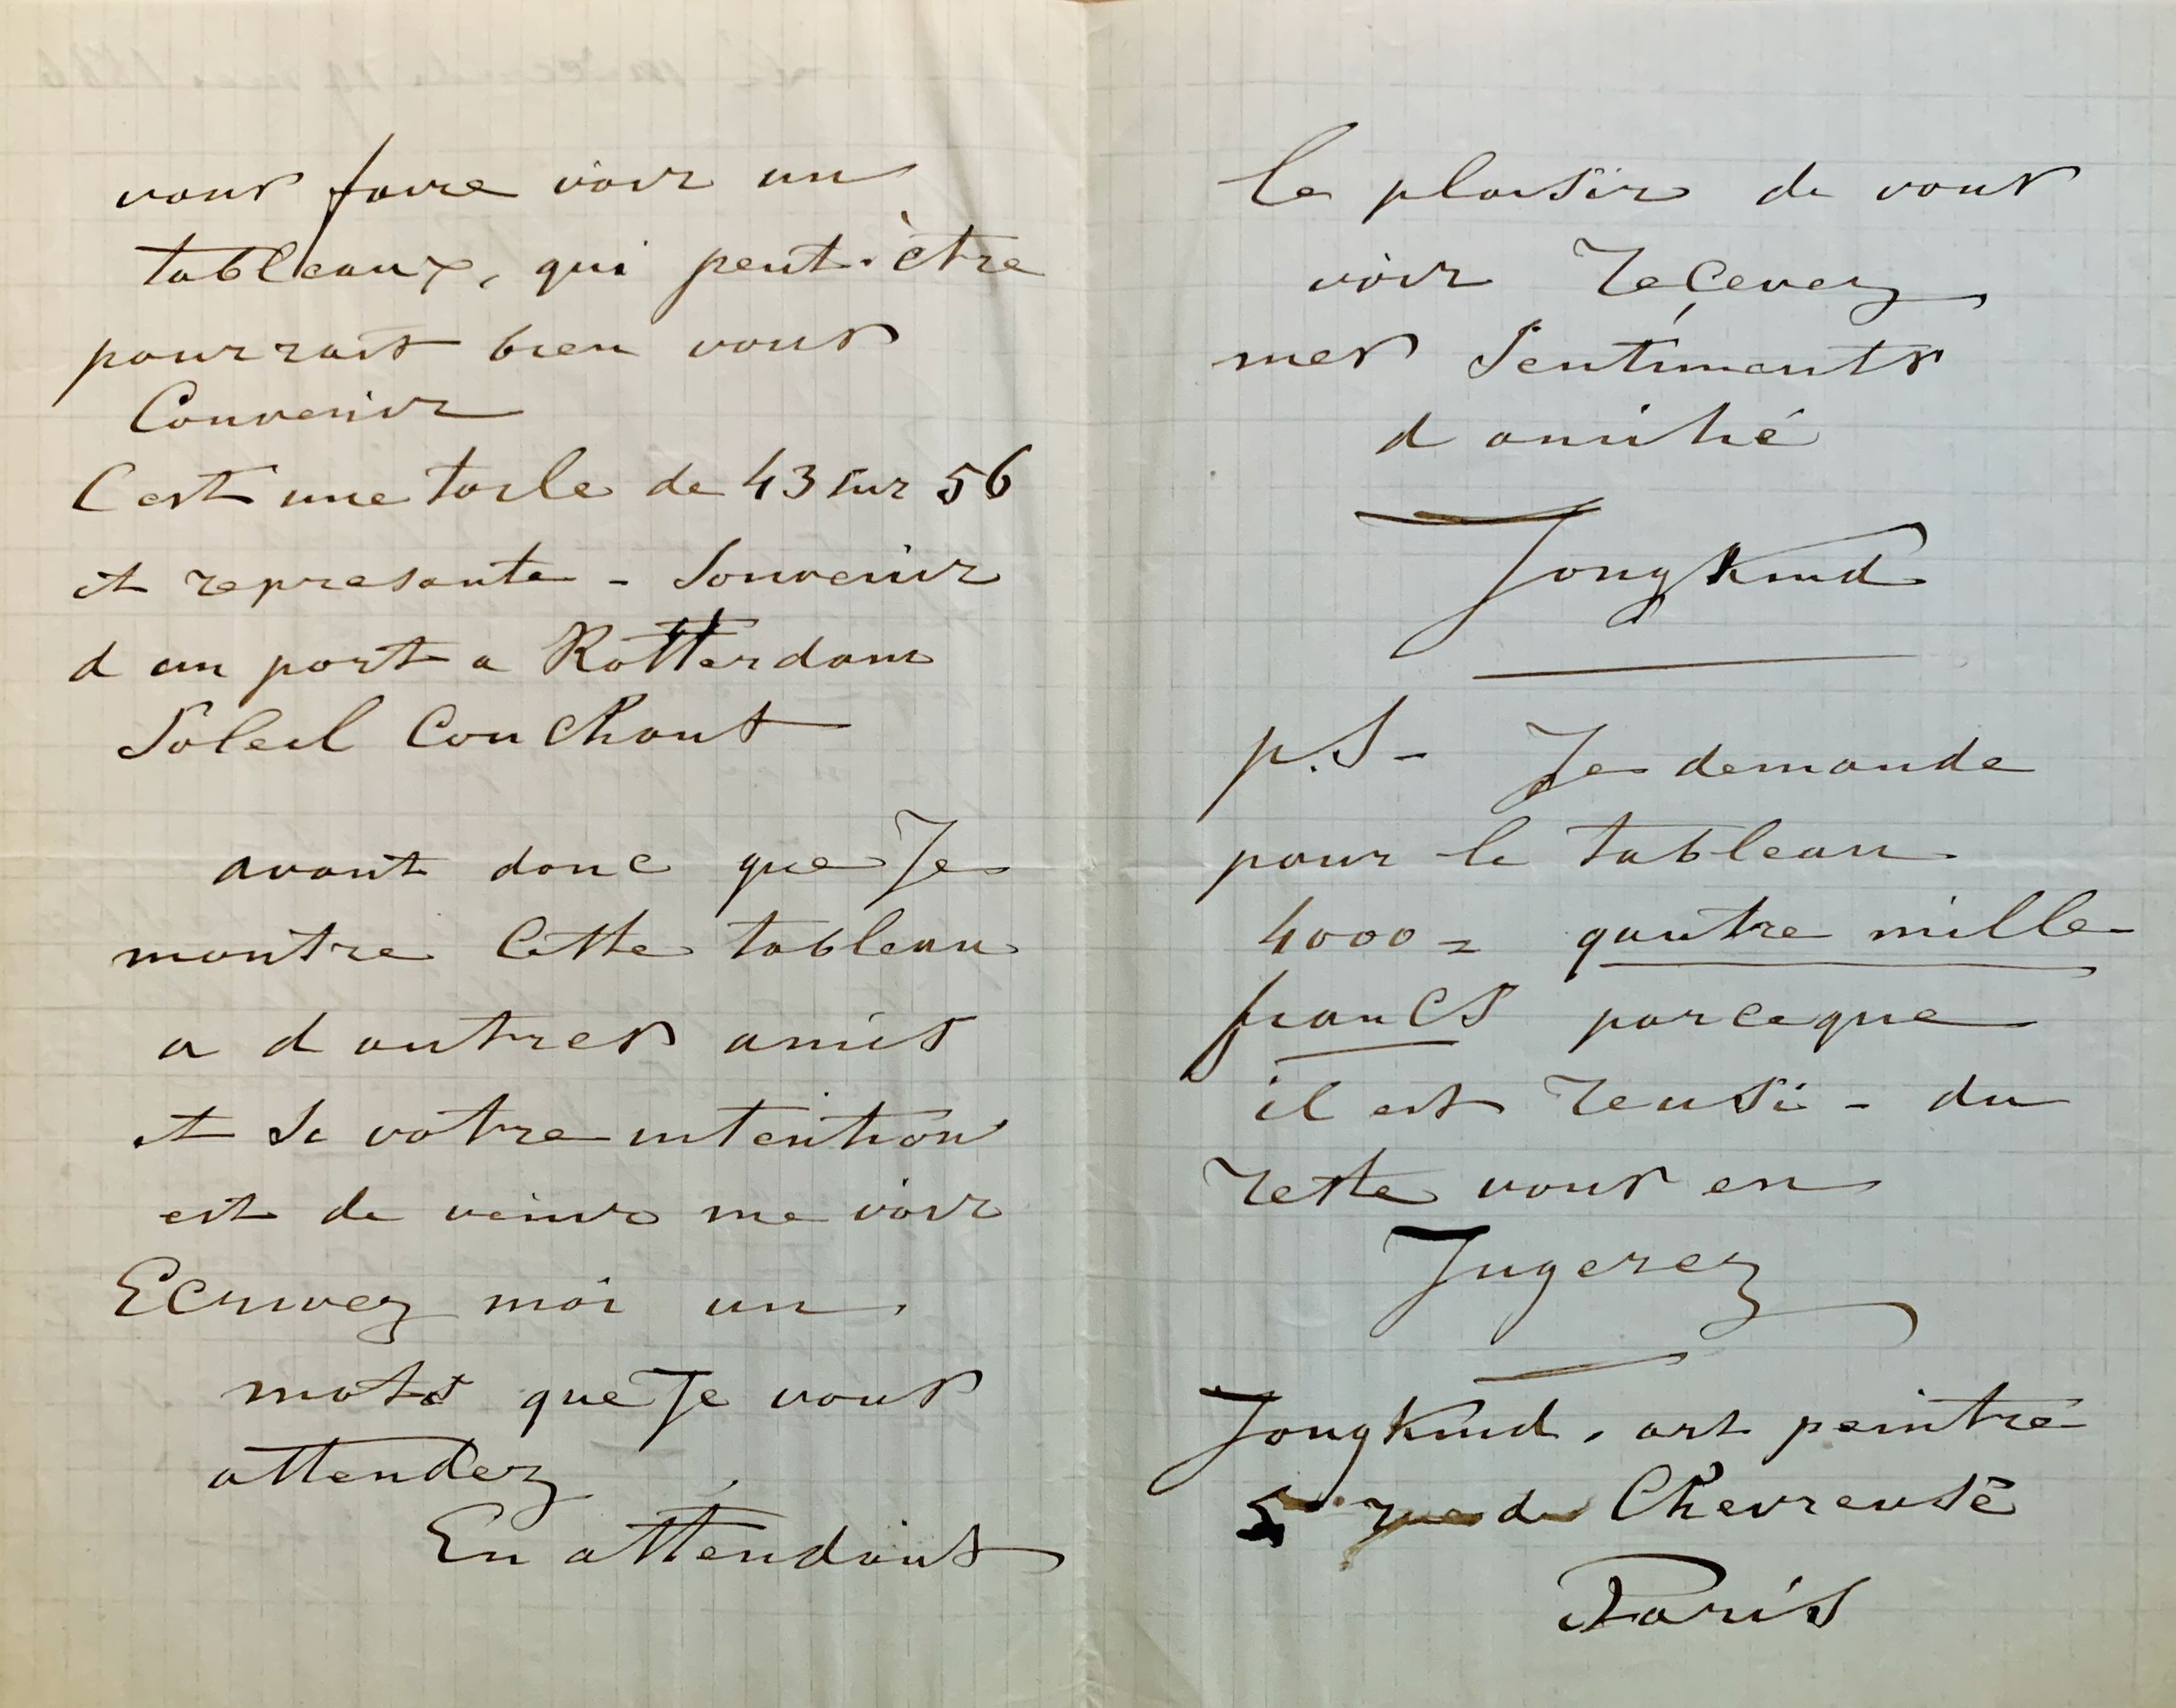 vous faire voir un
tableaux, qui peut-être
pourrait bien vous
Convenir
C est une toile de 43 sur 56
et represante - Souvenir
d un port a Rotterdam
Soleil Couchant
avant donc que Je
montre Cette tableau
a d autres amis
et Si votre intention
est de venir me voir
Ecrivez moi un
mots que Je vous
attendez
En attendant
le plaisir de vous
voir Reçevez
mes Sentiments
d amitié
Jongkind
p.S - Je demande
pour le tableau
4000 = quatre mille
francs parceque
il est reusi - du
reste vous en
Jugerez
Jongkind. art peintre
5 rue de Chevreuse
Paris